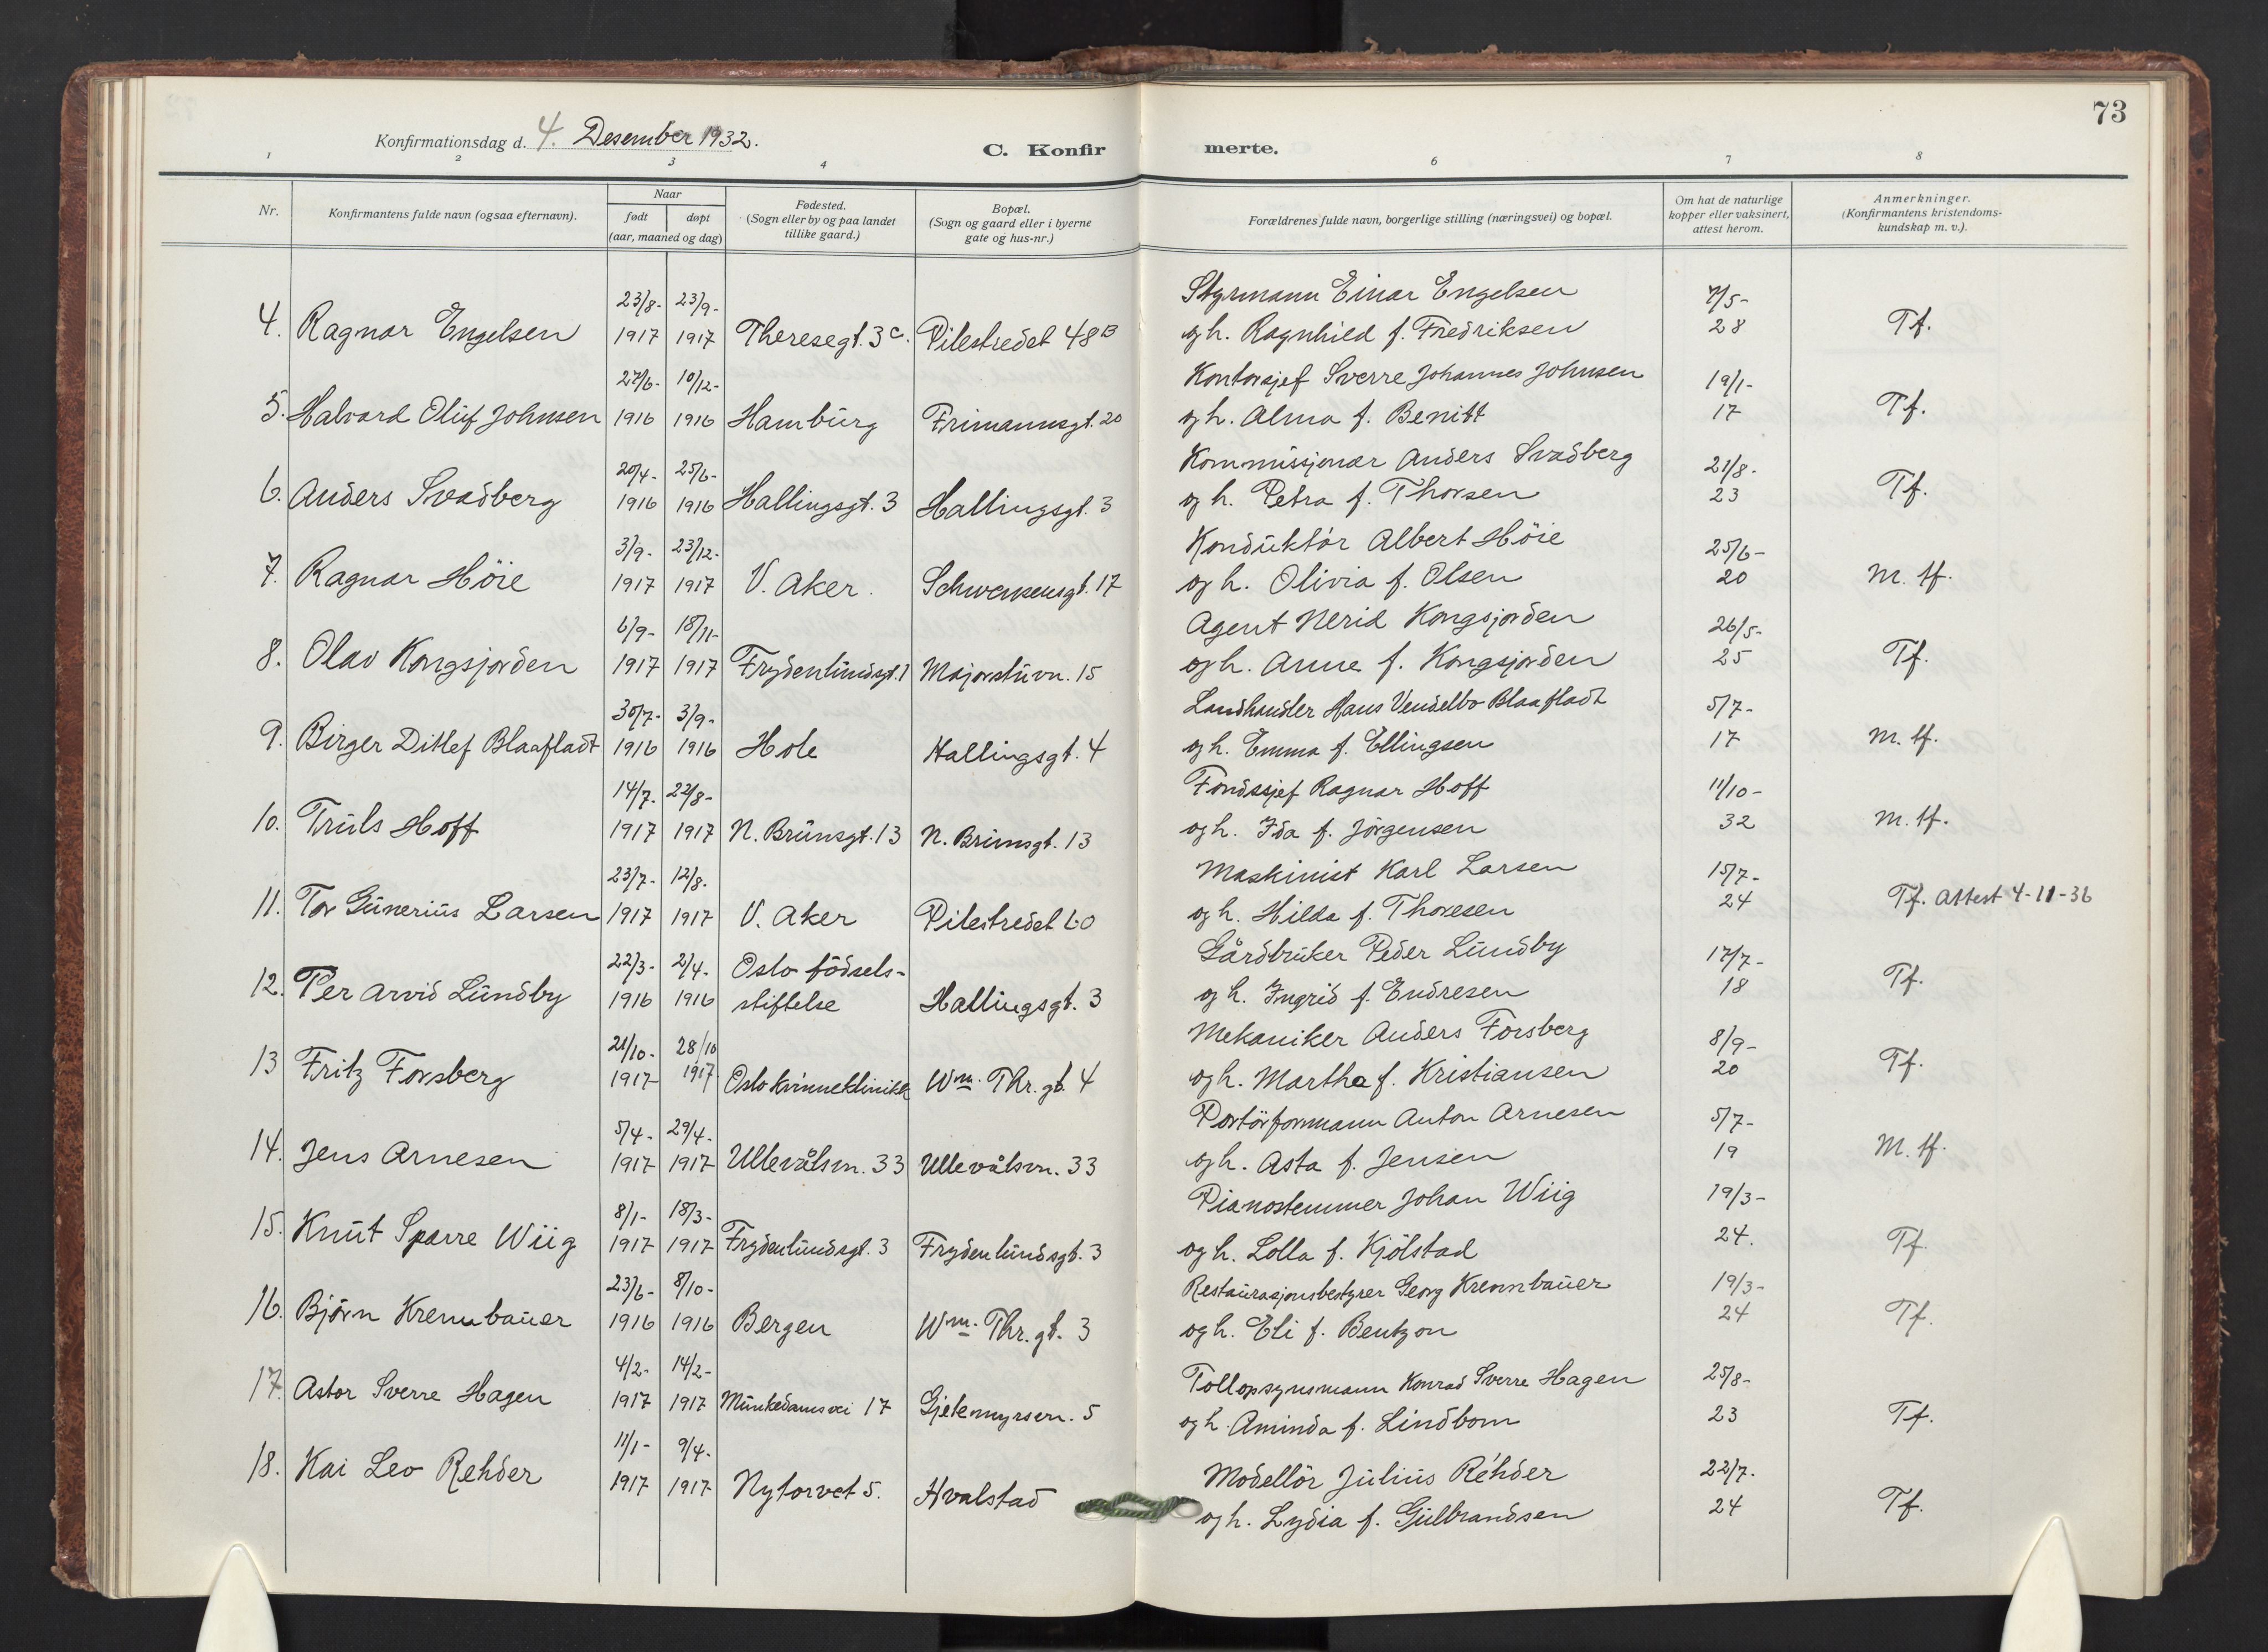 73
Konfirmationsdag d. 4. Desember 1932.
C. Konfirmerte.
1 2 3 4 6 7 8
Nr.
Konfirmantens fulde navn (ogsaa efternavn).
Naar
født døpt
(aar, maaned og dag)
Fødested.
(Sogn eller by og paa landet
tillike gaard.)
Bopæl.
(Sogn og gaard eller i byerne
gate og hus-nr.)
Forældrenes fulde navn, borgerlige stilling (næringsvei) og bopæl.
Om hat de naturlige
kopper eller vaksinert,
attest herom.
Anmerkninger.
(Konfirmantens kristendoms-
kundskap m. v.).
23/8- 23/9- Styrmann Einar Engelsen 7/5-
4. Ragnar Engelsen 1917 1917 Theresegt. 3c. Pilestredet 48B og h. Ragnhild f. Fredriksen 28 Tf.
27/6- 10/12- Kontorsjef Sverre Johannes Johnsen 19/1-
5. Halvard Oluf Johnsen 1916 1916 Hamburg Frimannsgt. 20 og h. Alma f. Benitt 17 Tf.
20/4- 25/6- Kommissjonær Anders Svadberg 21/8-
6. Anders Svadberg 1916 1916 Hallingsgt. 3 Hallingsgt. 3 og h. Petra f. Thorsen 23 Tf.
3/9- 23/12- Konduktör Albert Höie 25/6-
7. Ragnar Höie 1917 1917 V. Aker. Schwensensgt. 17 og h. Olivia f. Olsen 20 M. tf.
6/9- 18/11- Agent Nerid Kongsjorden 26/5-
8. Olav Kongsjorden 1917 1917 Frydenlundsgt. 1 Majorstuvn. 15 og h. Anne f. Kongsjorden 25 Tf.
30/7- 3/9- Landhandler Hans Vendelbo Blaafladt 5/7-
9. Birger Ditlef Blaafladt 1916 1916 Hole Hallingsgt. 4 og h. Emma f. Ellingsen 17 M. tf.
14/7- 22/8- Fondssjef Ragnar Hoff 11/10-
10. Truls Hoff 1917 1917 N. Brunsgt. 13 N. Brunsgt. 13 og h. Ida f. Jörgensen 32 M. tf.
23/7- 12/8- Maskinist Karl Larsen 15/7-
11. Tor Gunerius Larsen 1917 1917 V. Aker Pilestredet 60 og h. Hilda f. Thoresen 24 Tf. Attest 4-11-36
22/3- 2/4- Oslo födsels- Gårdbruker Peder Lundby 17/7-
12. Per Arvid Lundby 1916 1916 stiftelse Hallingsgt. 3 og h. Ingrid f. Endresen 18 Tf.
21/10- 28/10 Mekaniker Anders Forsberg 8/9-
13 Fritz Forsberg 1917 1917 Oslo kvinneklinikk Wm. Thr. gt. 4 og h. Martha f. Kristiansen 20 Tf.
5/4- 29/4- Portörformann Anton Arnesen 5/7-
14. Jens Arnesen 1917 1917 Ullevålsvn. 33 Ullevålsvn. 33 og h. Asta f. Jensen 19 M. tf.
8/1- 18/3- Pianostemmer Johan Wiig 19/3-
15. Knut Sparre Wiig 1917 1917 Frydenlundsgt. 3 Frydenlundsgt. 3 og h. Lolla f. Kjölstad 24. Tf.
23/6- 8/10- Restaurasjonsbestyrer Georg Krennbauer 19/3-
16. Björn Krennbauer 1916 1916 Bergen Wm. Thr. gt. 3 og h. Eli f. Bentzon 24 Tf.
4/2- 14/2- Tollopsynsmann Konrad Sverre Hagen 25/8-
17. Astor Sverre Hagen 1917 1917 Munkedamsvei 17 Gjetemyrsvn. 5 og h. Aminda f. Lindbom 23 Tf.
11/1- 9/4- Modellör Julius Rehder 22/7-
18. Kai Leo Rehder 1917 1917 Nytorvet 5. Hvalstad og h. Lydia f. Gulbrandsen 24 Tf.